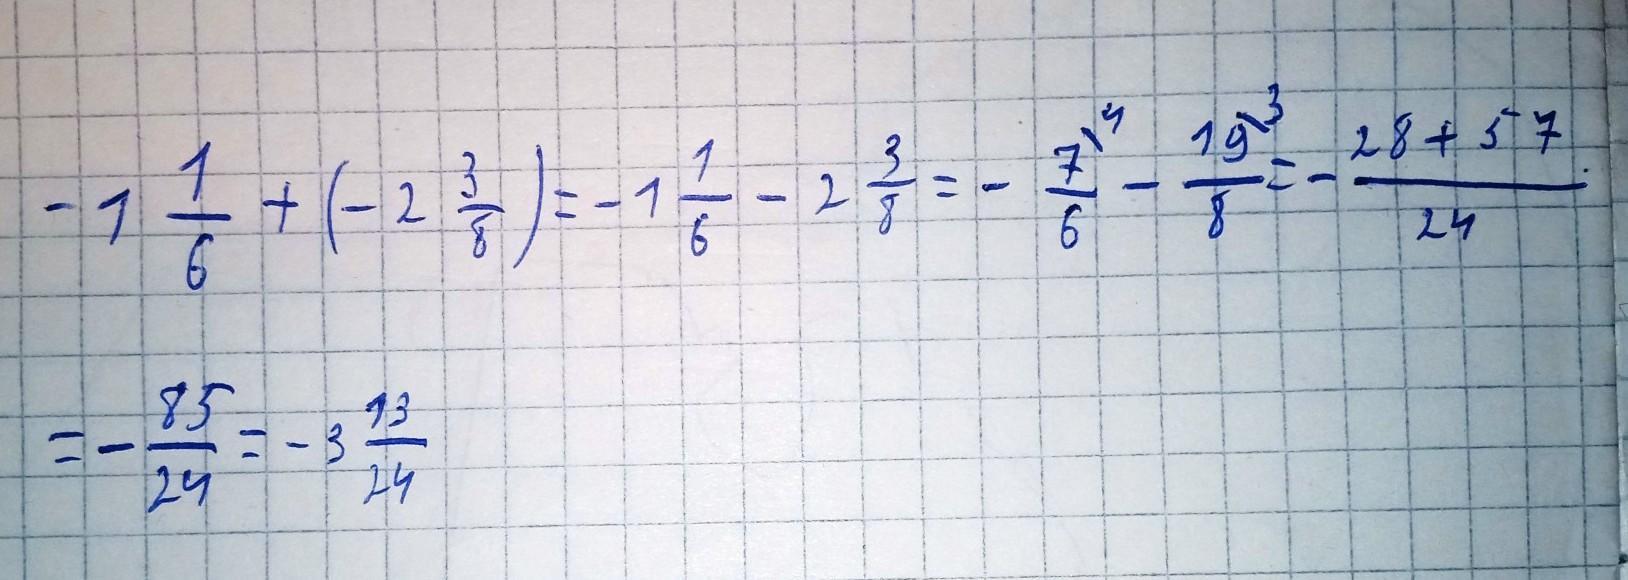 -1 1/6 + (-2 3/8) = -1 1/6 - 2 3/8 = - 7\4/6 - 19\3/8 = - 28+57/24
= - 85/24 = -3 13/24